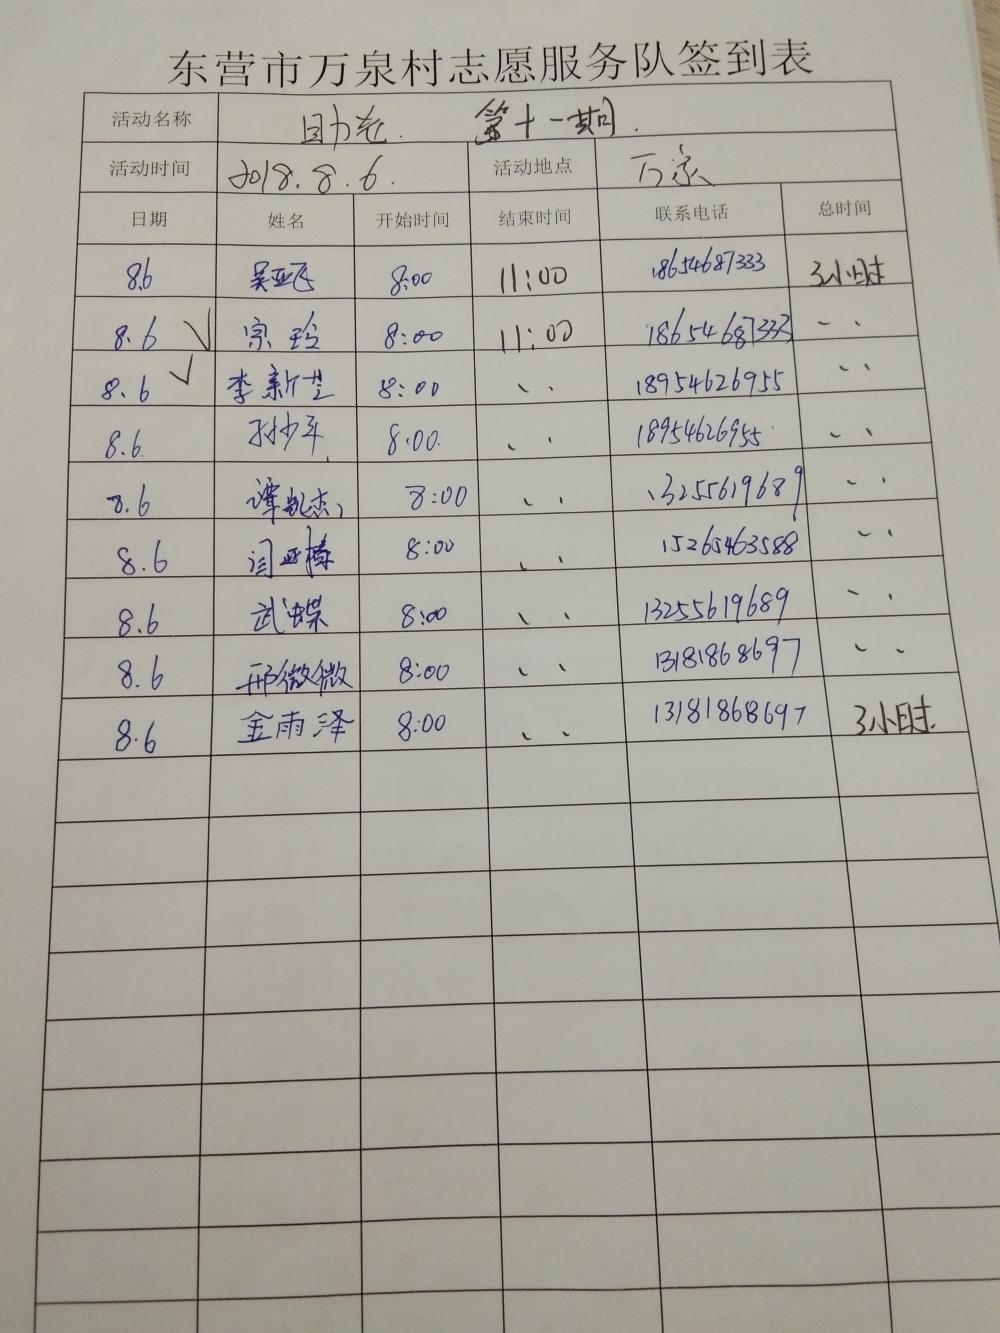 东营市万泉村志愿服务队签到表
活动名称 助老. 第十一期.
活动时间 2018.8.6. 活动地点 万泉
日期 姓名 开始时间 结束时间 联系电话 总时间
8.6 吴亚飞 8:00 11:00 18654687333 3小时
8.6 √ 宗玲 8:00 11:00 18654687333 、、
8.6 √ 李新芝 8:00 、、 18954626955 、、
8.6. 孙少军 8:00. 、、 18954626955 、、
8.6 谭凯杰 8:00 、、 13255619689 、、
8.6 闫亚楠 8:00 、、 15265463588 、、
8.6 武蝶 8:00 、、 13255619689 、、
8.6 邢微微 8:00 、、 13181868697 、、
8.6 金雨泽 8:00 、、 13181868697 3小时.